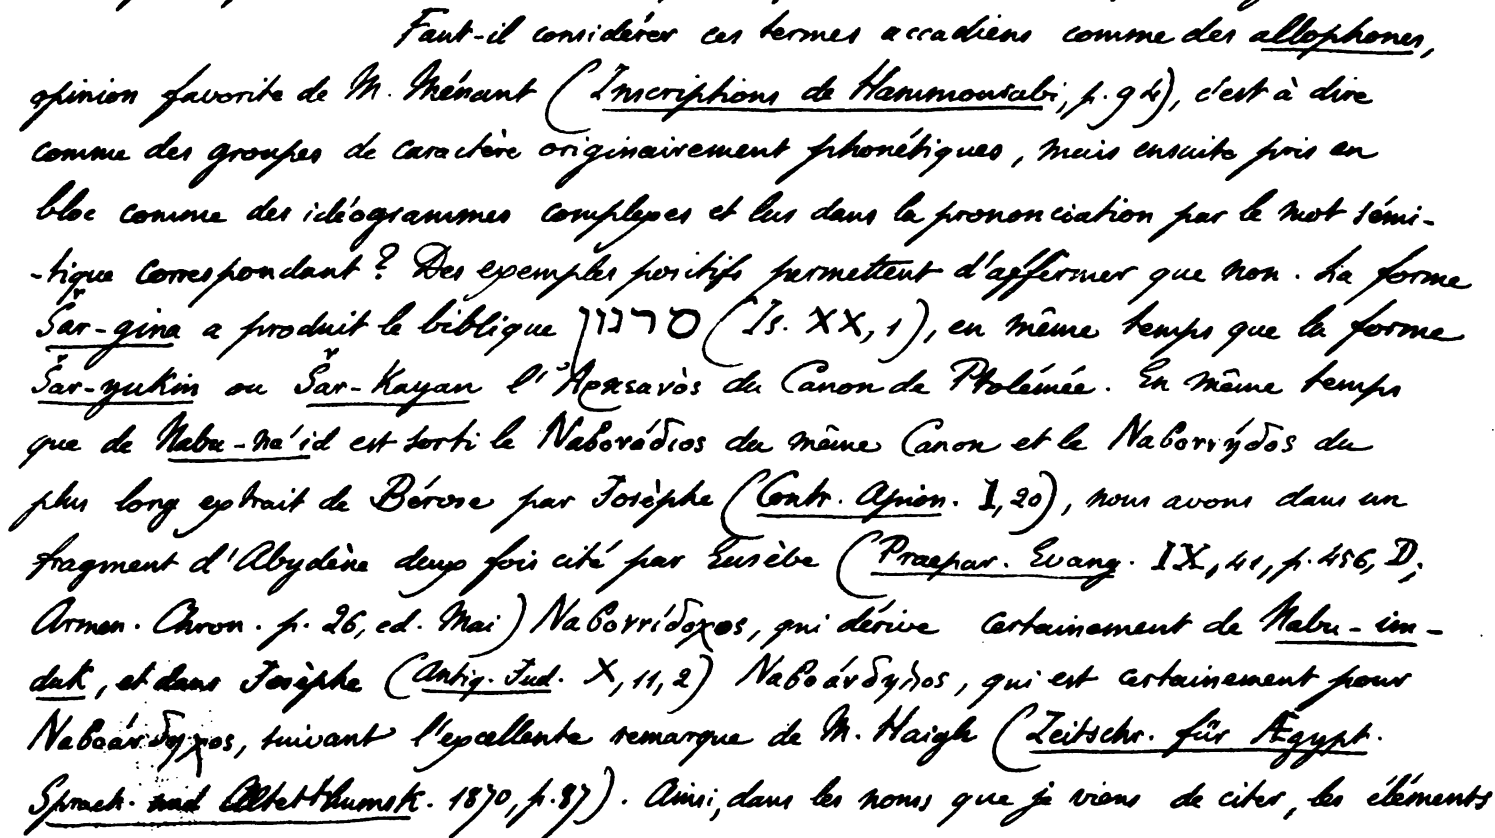 Faut-il considérer ces termes accadiens comme des allophones,
opinion favorite de M. Ménant (Inscriptions de Hammourabi, p. 94), c'est à dire
comme des groupes de caractère originairement phonétiques, mais ensuite pris en
bloc comme des idéogrammes complexes et lus dans la prononciation par le mot sémi-
-tique correspondant? Des exemples positifs permettent d'affermer que non. La forme
Šar-gina a produit le biblique סרגון (Is. XX, 1), en même temps que la forme
Šar-yukin ou Šar-Kayan l'Ἀρκεανὸς du Canon de Ptolémée. En même temps
que de Nabu-na'id est sorti le Ναβονάδιος du même Canon et le Ναβοννήδος du
plus long extrait de Bérose par Josèphe (Contr. Apion. I, 20), nous avons dans un
fragment d'Abydène deux fois cité par Eusèbe (Praepar. Evang. IX, 41, p. 456, D;
Armen. Chron. p. 26, ed. Mai) Ναβοννίδοχος, qui dérive certainement de Nabu-im-
duk, et dans Josèphe (Antiq. Jud. X, 11, 2) Ναβοάνδηλος, qui est certainement pour
Ναβοάνδηχος, suivant l'excellente remarque de M. Haigh (Zeitschr. für Ægypt.
Sprach. und Altetthumsk. 1870, p. 87). Ainsi, dans les noms que je viens de citer, les éléments